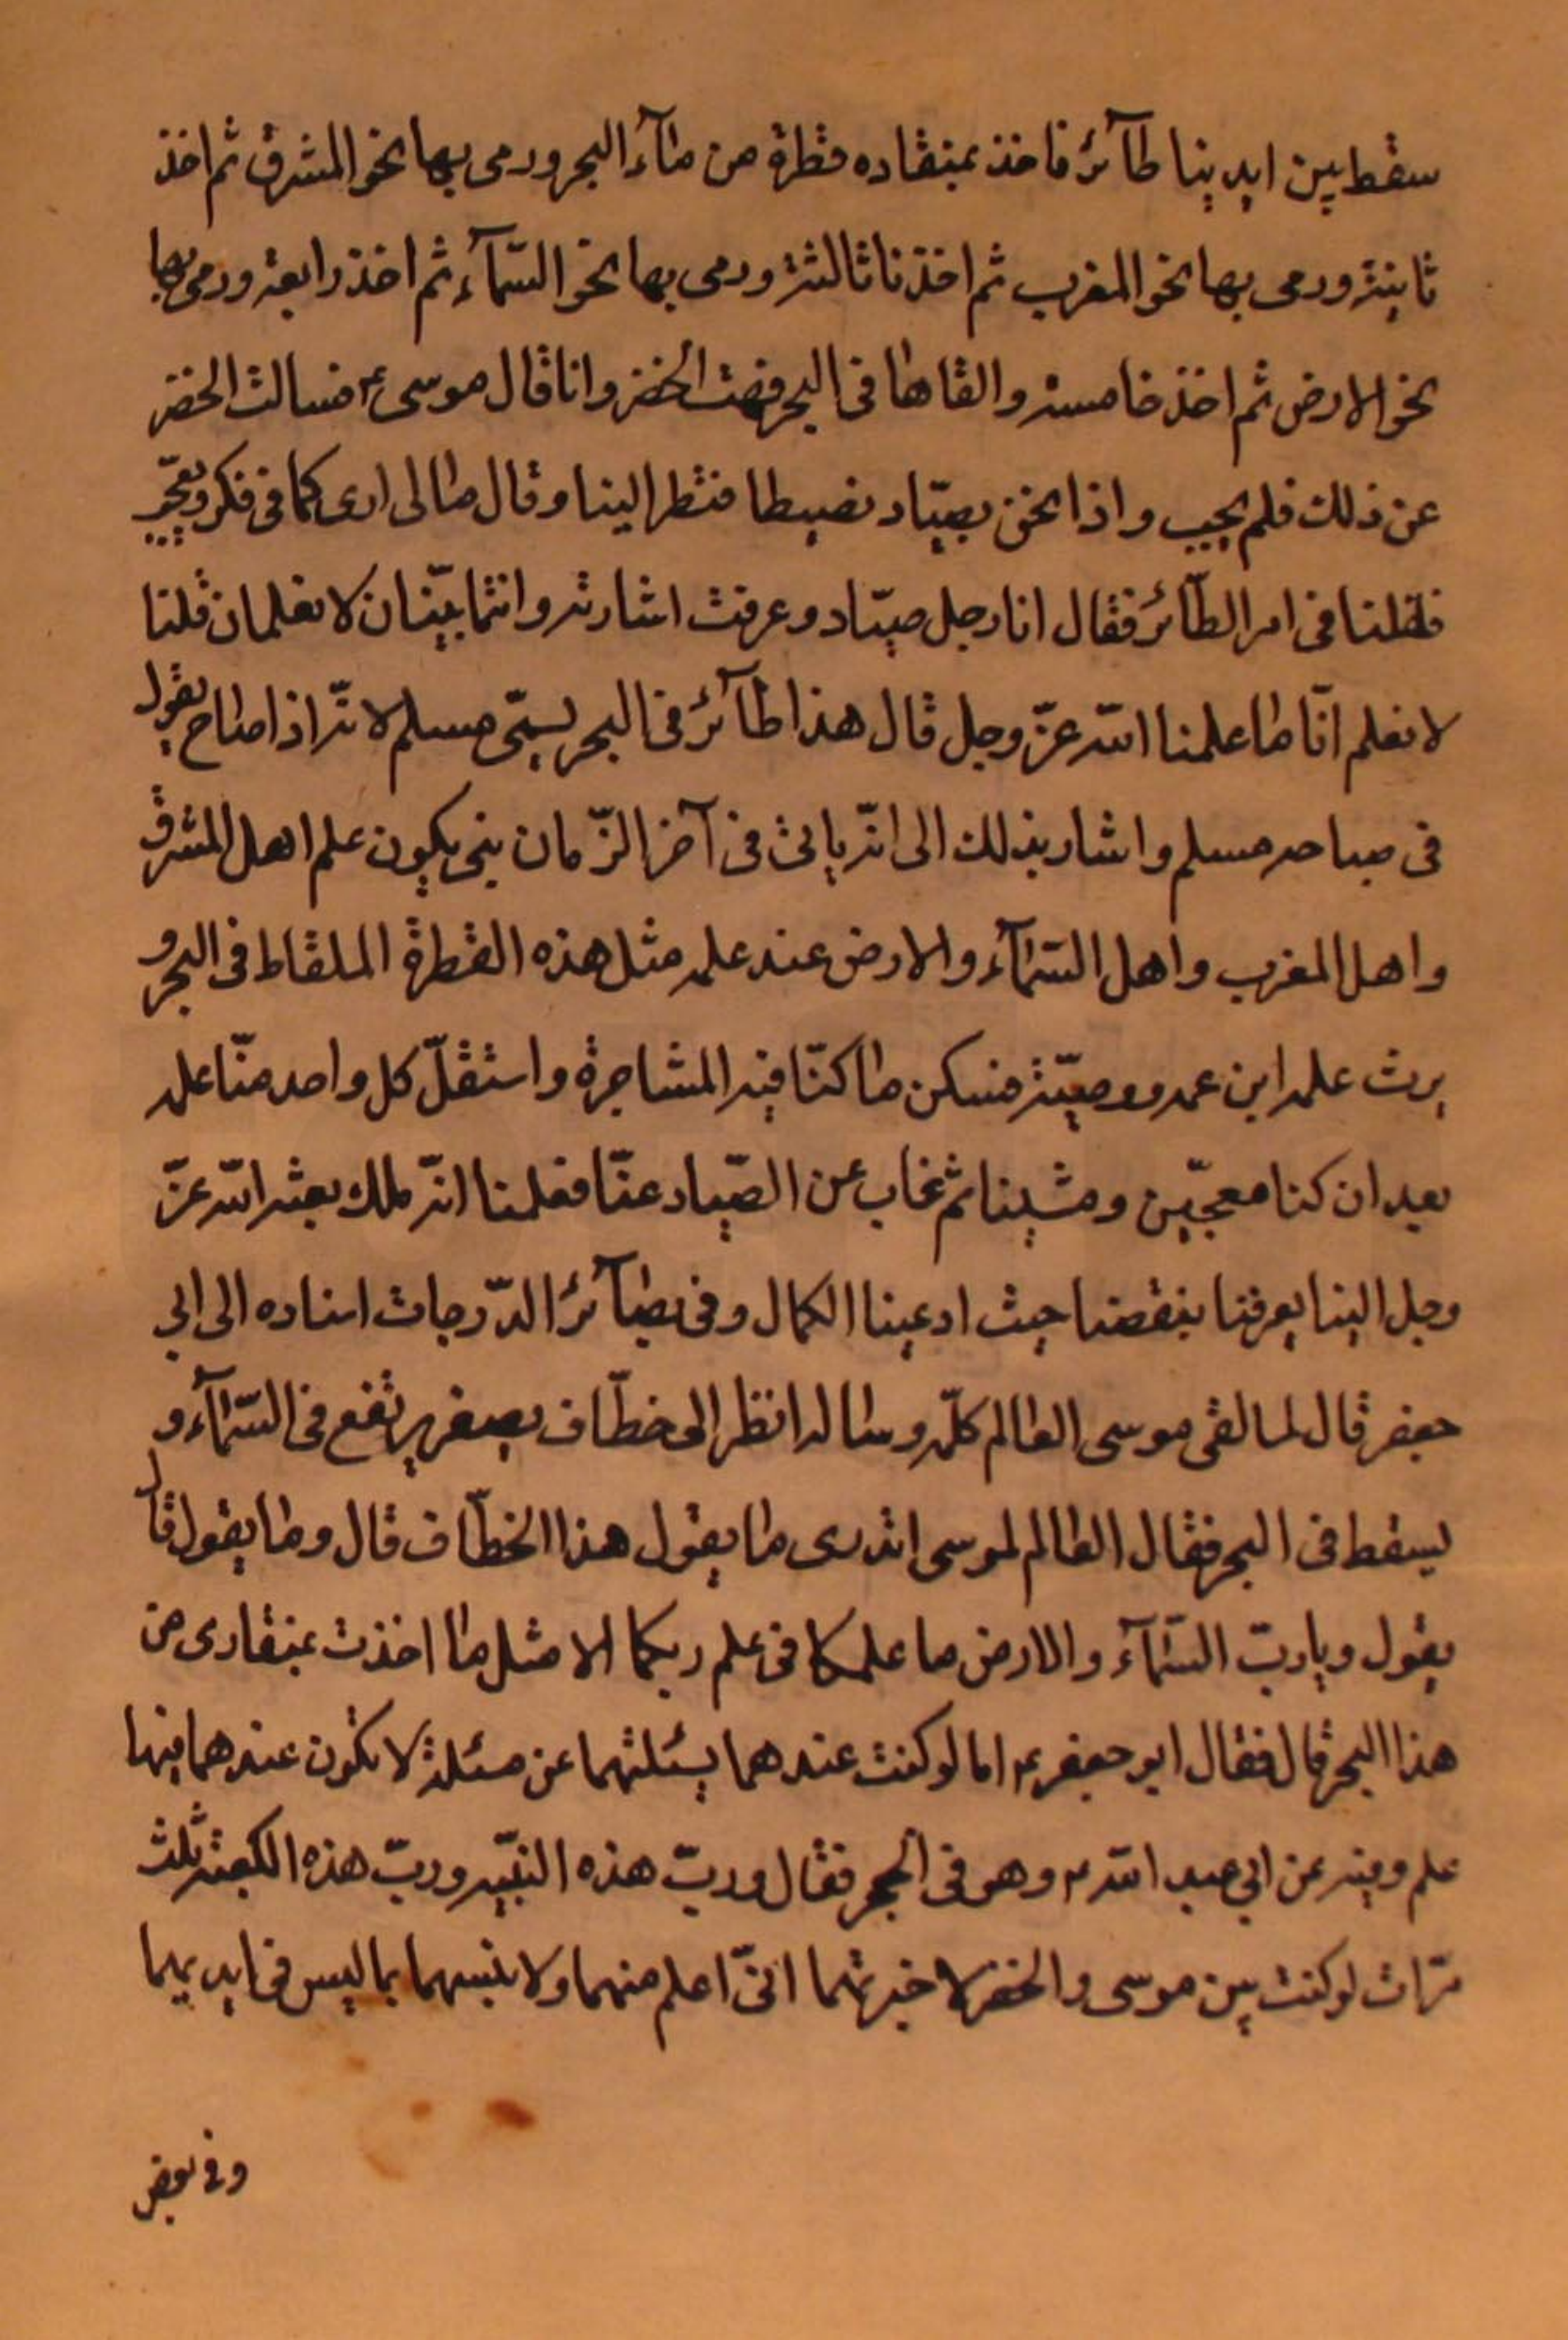 سقط بين ايدينا طآئر فاخذ بمنقاده قطرة من مآء البحر ورمى بها نحو المشرق ثم اخذ
ثانية ورمى بها نحو المغرب ثم اخذنا ثالثة ورمى بها نحو السّمآء ثم اخذ رابعة ورمى بها
نحو الارض ثم اخذ خامسة والقاها فى البحر فبهت الخضر وانا قال موسى ع فسالت الخضر
عن ذلك فلم يجيب واذا نحن بصيّاد فنظر الينا وقال ما لى ارى كما فى فكر وتعجّب
فقلنا فى امر الطّآئر فقال انا رجل صيّاد وعرفت اشارته وانتما نبيّان لا تعلمان قلنا
لا نعلم الّا ما علمنا الله عزّ وجل قال هذا طآئر فى البحر يسمّى مسلم لانّه اذا صاح يقول
فى صياحه مسلم واشار بذلك الى انّه ياتى فى آخر الزّمان نبى يكون علم اهل المشرق
واهل المغرب واهل السّمآء والارض عند علمه مثل هذه القطرة الملقاط فى البحر و
يرث علمه ابن عمه ووصيّه فسكن ما كنّا فيه المشاجرة واستقلّ كل واحد منّا علمه
بعد ان كنا معجبّين ومشينا ثم غاب عن الصّياد عنّا فعلمنا انّه ملك بعثه الله عزّ
وجل الينا يعرفنا بنقصنا حيث ادعينا الكمال وفى بصآئر الدّرجات اسناده الى ابى
جعفر قال لما لقى موسى العالم كلّمه وساله انظر الى خطّاف يصفر يرتفع فى السّمآء و
يسقط فى البحر فقال العالم لموسى اتدرى ما يقول هذا الخطّاف قال وما يقول قال
يقول وياربّ السّمآء والارض ما علمكما فى علم ربكما الا مثل ما اخذت بمنقارى من
هذا البحر قال فقال ابو جعفر ع اما لو كنت عندهما يسئلتهما عن مسئلة لا تكون عندهما فيها
علم وفيه عن ابى عبد الله ع وهو فى الحجر فقال وربّ هذه البنيّه وربّ هذه الكعبة ثلث
مرّات لو كنت بين موسى والخضر لاخبرتهما انىّ اعلم منهما ولا نبئهما بما ليس فى ايديهما
وفى بعض